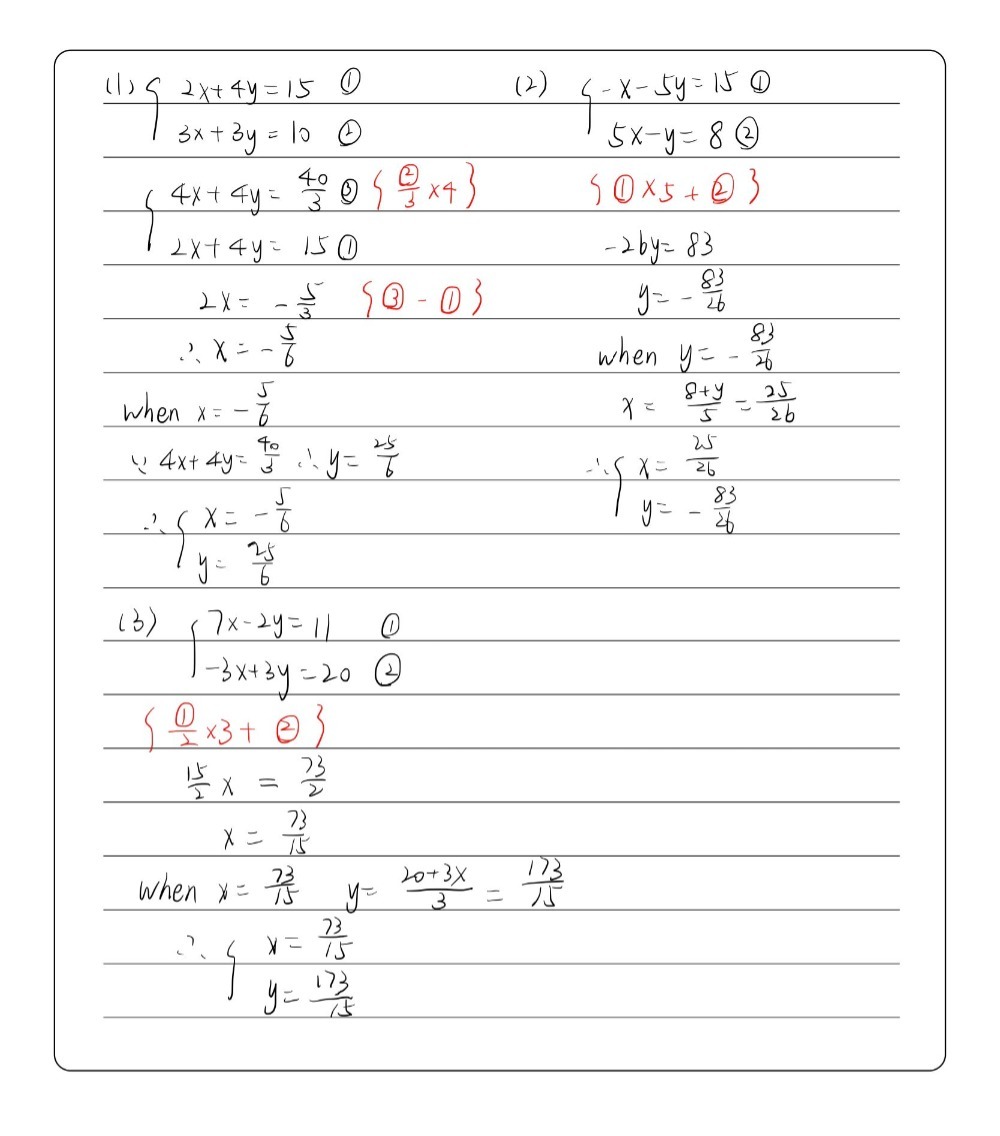 (1) { 2x+4y=15 ①
3x+3y=10 ②
{ 4x+4y=40/3 ③ {②/3 ×4}
2x+4y=15 ①
2x=-5/3 {③-①}
∴ x=-5/6
when x=-5/6
∵ 4x+4y=40/3 ∴ y=25/6
∴ { x=-5/6
y=25/6
(2) { -x-5y=15 ①
5x-y=8 ②
{①×5+②}
-26y=83
y=-83/26
when y=-83/26
x=(8+y)/5=25/26
∴ { x=25/26
y=-83/26
(3) { 7x-2y=11 ①
-3x+3y=20 ②
{①/2 ×3+②}
15/2 x = 73/2
x=73/15
when x=73/15 y=(20+3x)/3=173/15
∴ { x=73/15
y=173/15